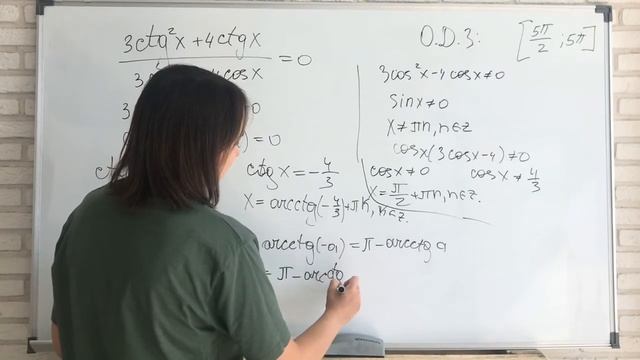 3ctg²x + 4ctgx
3 cosx = 0
3
) = 0
ct ctgx = -4/3
x = arcctg(-4/3) + πk, k∈z.
arcctg(-a) = π - arcctg a
= π - arcctg
О.D.З: [5π/2 ; 5π]
3cos²x - 4cosx ≠ 0
sinx ≠ 0
x ≠ πn, n∈z
cosx(3cosx - 4) ≠ 0
cosx ≠ 0 cosx ≠ 4/3
x = π/2 + πn, n∈z.